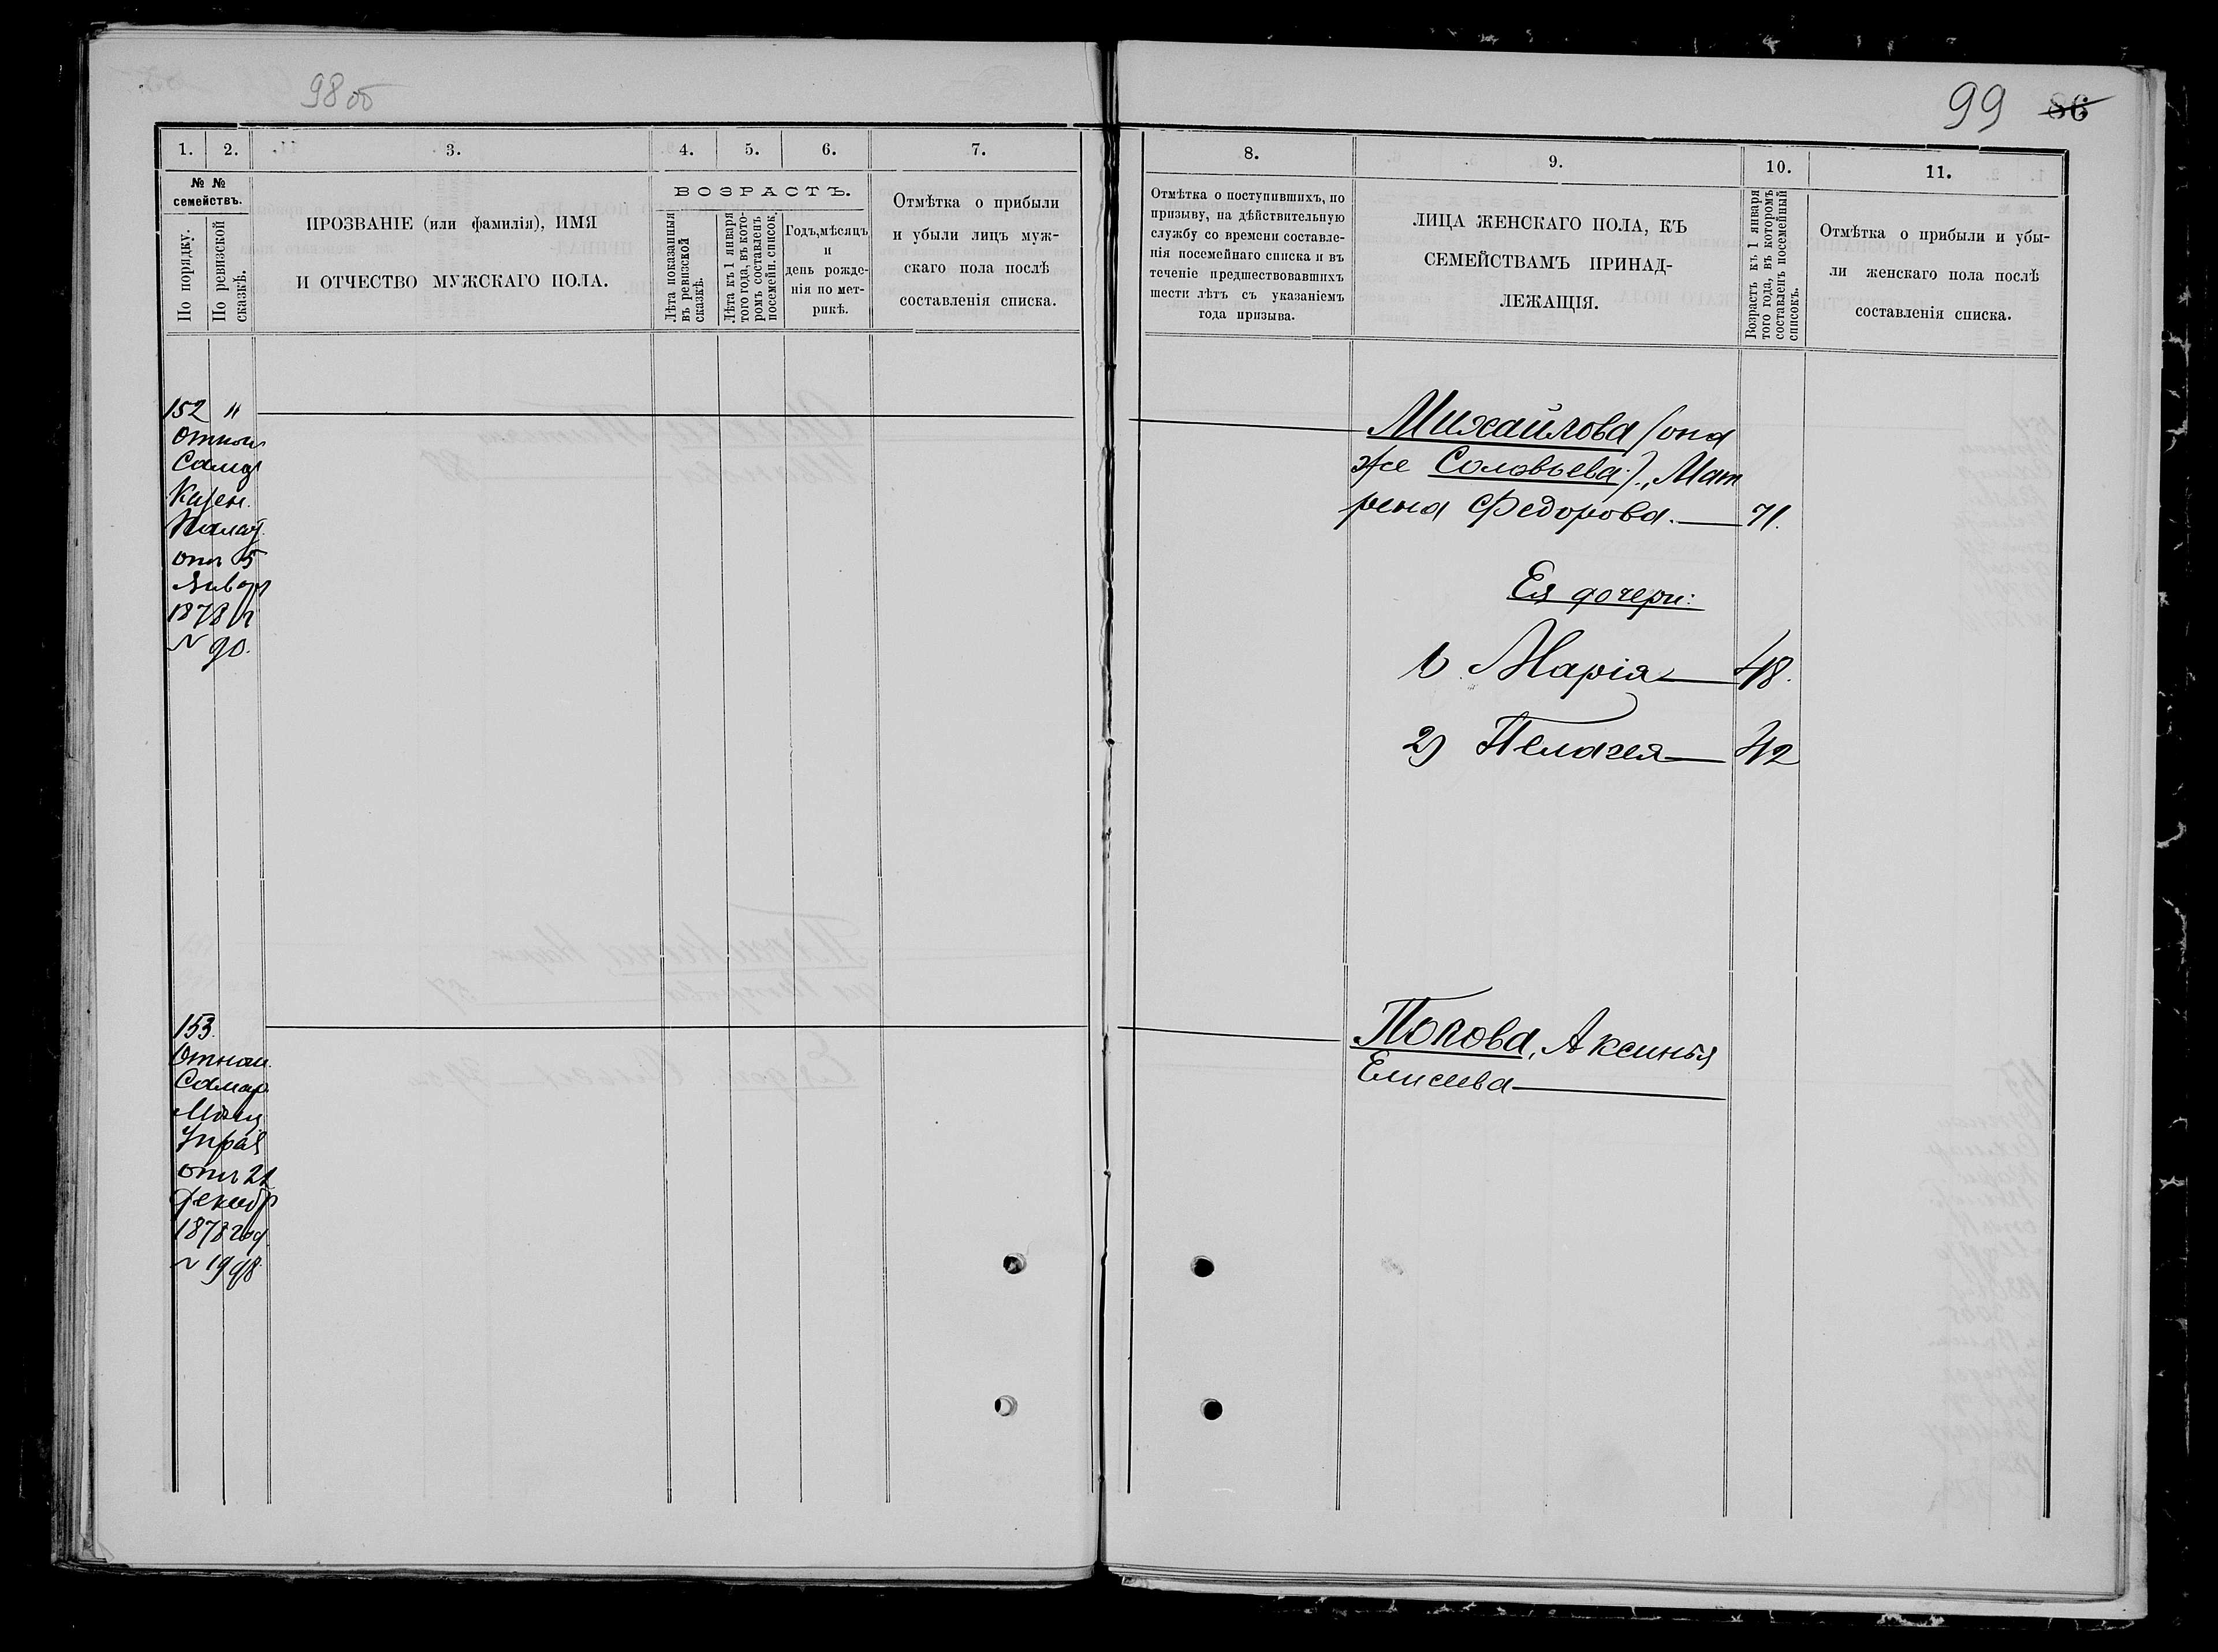 98 об
99 86
1. 2. 3. 4. 5. 6. 7.
№ №
семействъ.
По порядку.
По ревизской
сказкѣ.
ПРОЗВАНІЕ (или фамилія), ИМЯ
И ОТЧЕСТВО МУЖСКАГО ПОЛА.
ВОЗРАСТЪ.
Лѣта показанныя
въ ревизской
сказкѣ.
Лѣта къ 1 января
того года, въ кото-
ромъ составленъ
посемейн. список.
Годъ, мѣсяцъ
и
день рожде-
нія по мет-
рикѣ.
Отмѣтка о прибыли
и убыли лицъ муж-
скаго пола послѣ
составленія списка.
152 "
Отнош
Самар
Казен.
Палат
от 5
Январ
1878 г
№ 90.
153.
Отнош.
Самар.
Мѣщ.
Управ
от 21
Декабр
1878 год.
№ 1998.
8. 9. 10. 11.
Отмѣтка о поступившихъ, по
призыву, на дѣйствительную
службу со времени составле-
нія посемейнаго списка и въ
теченіе предшествовавшихъ
шести лѣтъ съ указаніемъ
года призыва.
ЛИЦА ЖЕНСКАГО ПОЛА, КЪ
СЕМЕЙСТВАМЪ ПРИНАД-
ЛЕЖАЩІЯ.
Возрастъ къ 1 января
того года, въ которомъ
составленъ посемейный
списокъ.
Отмѣтка о прибыли и убы-
ли женскаго пола послѣ
составленія списка.
Михайлова (она
же Соловьева), Мат
рена Федорова. 71.
Ея дочери:
1) Марія 48.
2) Пелагея 42
Попова, Аксинья
Елисеева